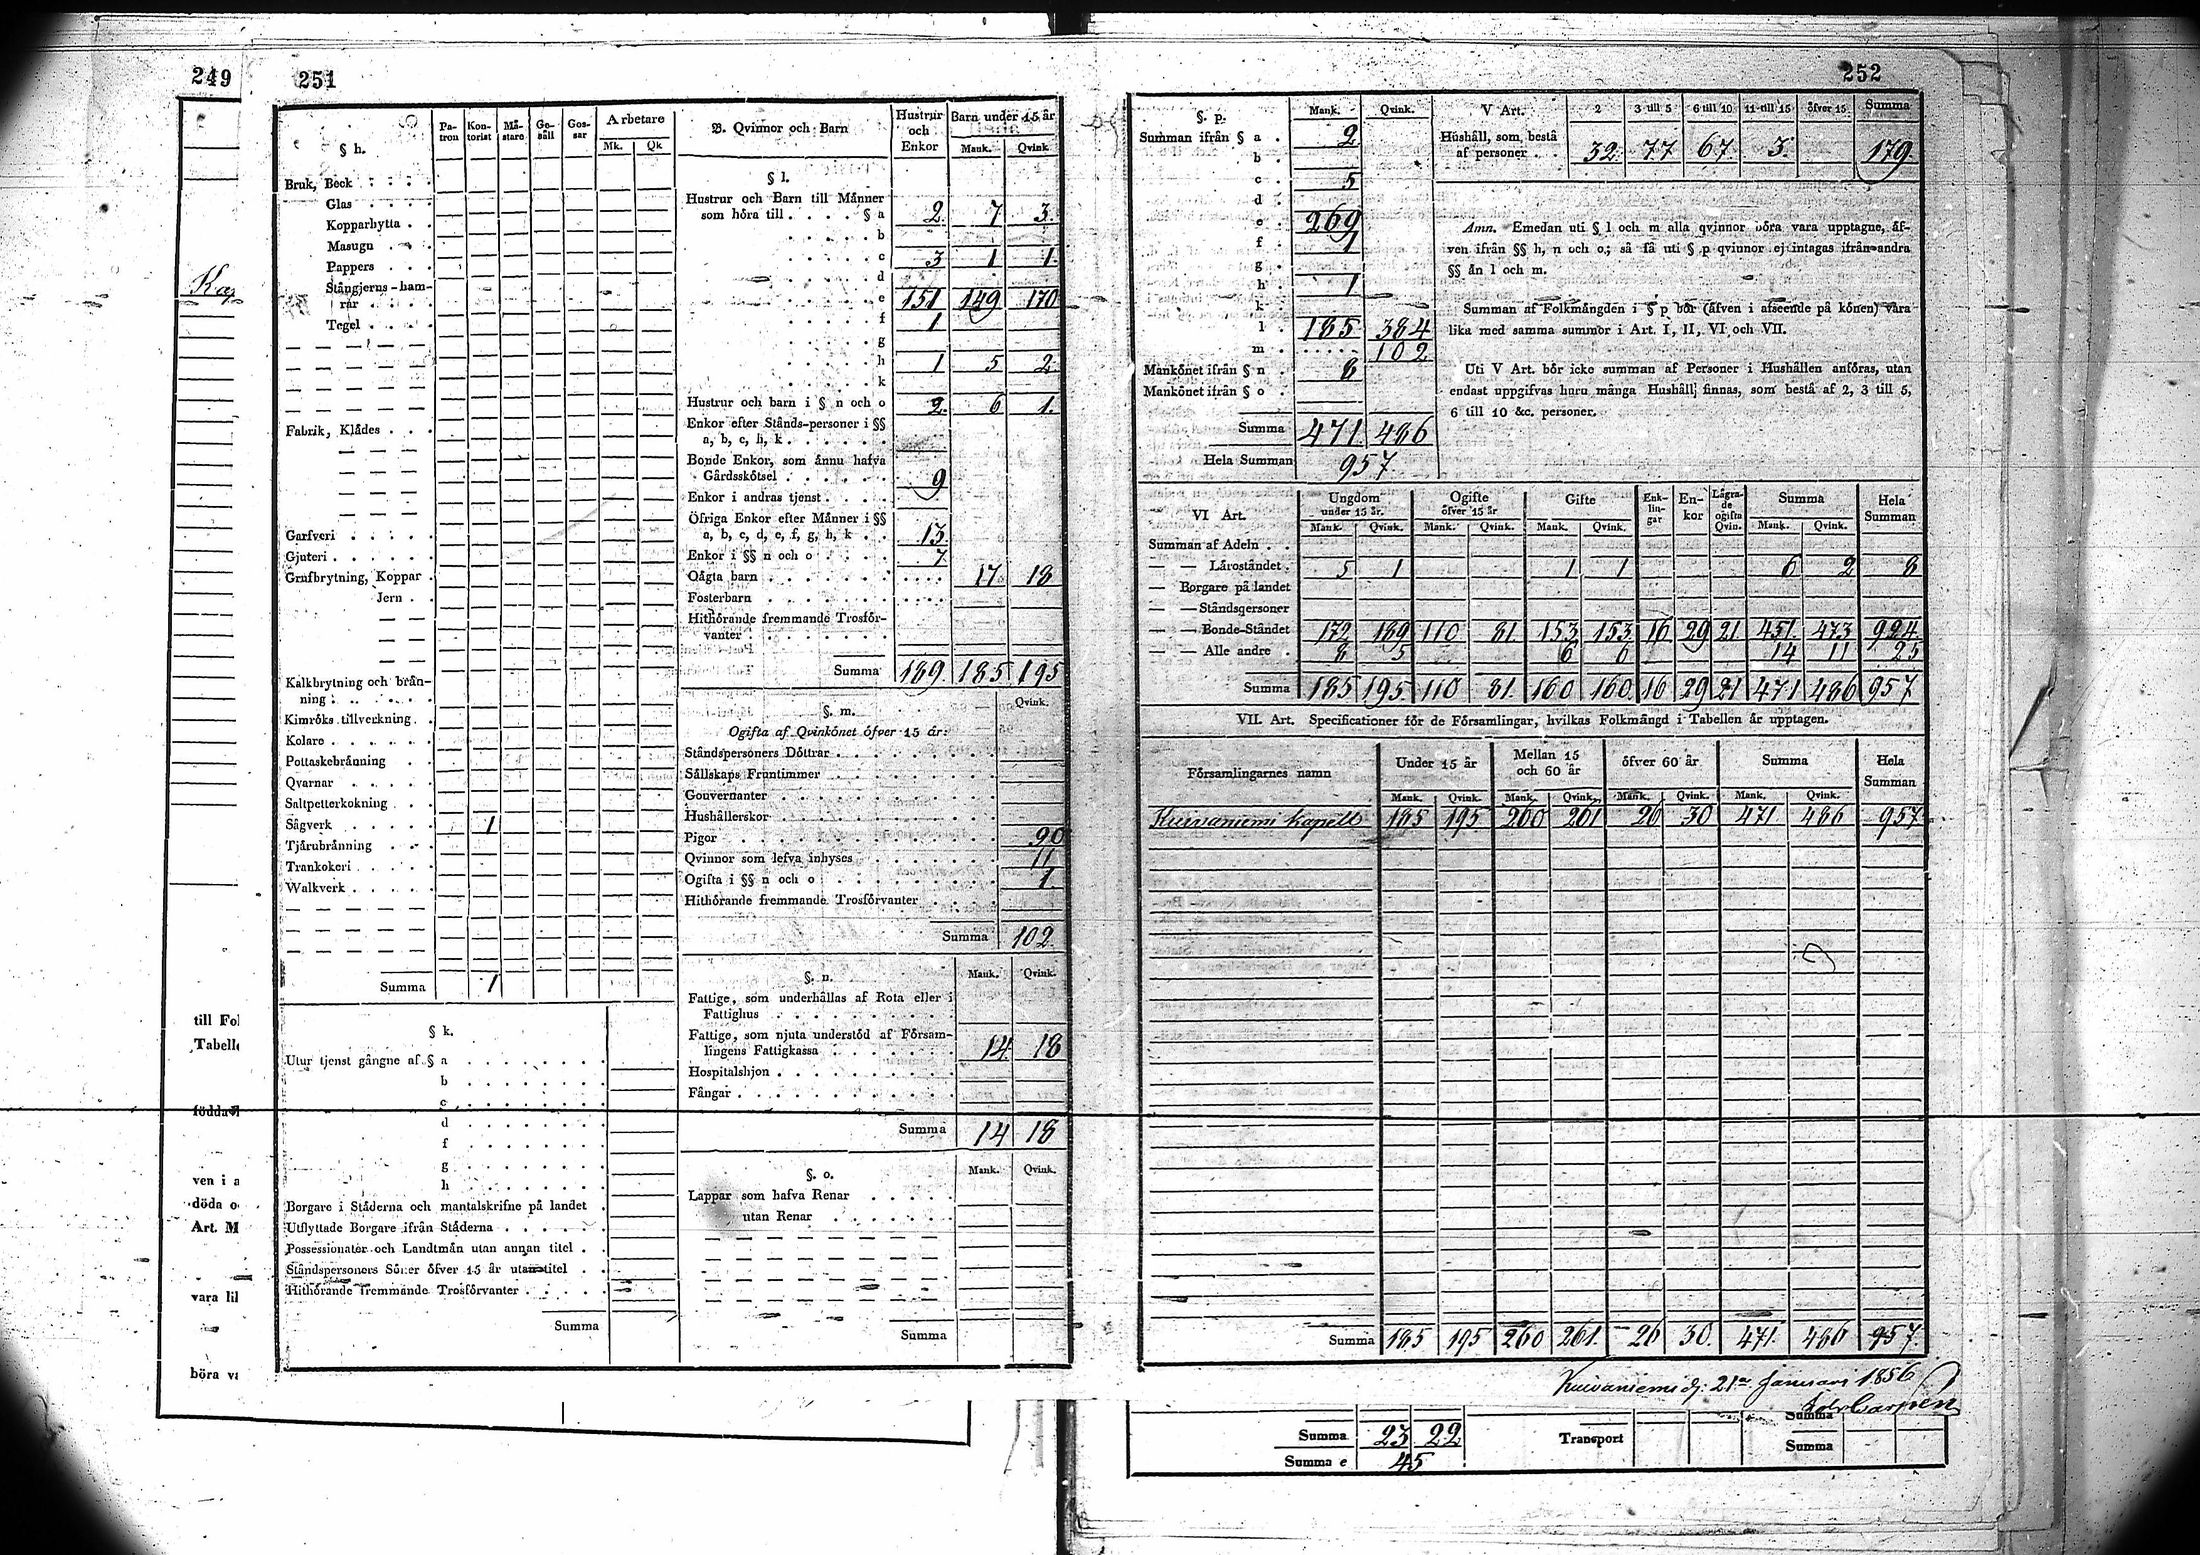 249
251
252
Kap
till Fol
Tabelle
födda
ven i a
döda o
Art. M
vara lil
böra va
§ h.
Pa-tron Kon-torist Mä-stare Ge-säll Gos-sar Arbetare
Mk. Qk
Bruk, Beck
Glas
Kopparhytta
Masugn
Pappers
Stångjerns-ham-
rar
Tegel
Fabrik, Klädes
Garfveri
Gjuteri
Grufbrytning, Koppar
Jern
Kalkbrytning och brän-
ning
Kimröks tillverkning
Kolare
Pottaskebränning
Qvarnar
Saltpetterkokning
Sågverk 1
Tjärubränning
Trankokeri
Walkverk
Summa 1
§ k.
Utur tjenst gångne af § a
b
c
d
f
g
h
Borgare i Städerna och mantalskrifne på landet
Utflyttade Borgare ifrån Städerna
Possessionater och Landtmän utan annan titel
Ståndspersoners Söner öfver 15 år utan titel
Hithörande fremmande Trosförvanter
Summa
B. Qvinnor och Barn
Hustrur och Enkor
Barn under 15 år
Mank. Qvink.
§ l.
Hustrur och Barn till Männer
som höra till § a 2. 7 3.
b
c 3 1 1.
d
e 151 149 170
f 1
g
h 1 5 2.
k
Hustrur och barn i § n och o 2. 6 1.
Enkor efter Stånds-personer i §§
a, b, c, h, k
Bonde Enkor, som ännu hafva
Gårdsskötsel 9
Enkor i andras tjenst
Öfriga Enkor efter Männer i §§
a, b, c, d, e, f, g, h, k 13.
Enkor i §§ n och o 7
Oägta barn 17 18
Fosterbarn
Hithörande fremmande Trosför-
vanter
Summa 189. 185 195
§. m. Qvink.
Ogifta af Qvinkönet öfver 15 år:
Ståndspersoners Döttrar
Sällskaps Fruntimmer
Gouvernanter
Hushållerskor
Pigor 90
Qvinnor som lefva inhyses 11
Ogifta i §§ n och o 1.
Hithörande fremmande Trosförvanter
Summa 102.
§. n. Mank. Qvink.
Fattige, som underhållas af Rota eller i
Fattighus
Fattige, som njuta understöd af Försam-
lingens Fattigkassa 14 18
Hospitalshjon
Fångar
Summa 14 18
§. o. Mank. Qvink.
Lappar som hafva Renar
utan Renar
Summa
§. p. Mank. Qvink.
Summan ifrån § a 2
b
c 5
d
e 269
f 1
g
h 1
k
l 185 384
m 102
Mankönet ifrån § n 8
Mankönet ifrån § o
Summa 471 486
Hela Summan 957
V Art. 2 3 till 5 6 till 10 11 till 15 öfver 15 Summa
Hushåll, som bestå
af personer 32 77 67 3. 179.
Anm. Emedan uti § l och m alla qvinnor böra vara upptagne, äf-
ven ifrån §§ h, n och o; så få uti § p qvinnor ej intagas ifrån andra
§§ än l och m.
Summan af Folkmängden i § p bör (äfven i afseende på könen) vara
lika med samma summor i Art. I, II, VI och VII.
Uti V Art. bör icke summan af Personer i Hushållen anföras, utan
endast uppgifvas huru många Hushåll finnas, som bestå af 2, 3 till 5,
6 till 10 &c. personer.
VI Art. Ungdom under 15 år. Ogifte öfver 15 år Gifte Enk-lin-gar En-kor Lägra-de ogifta Qvin. Summa Hela Summan
Mank. Qvink. Mank. Qvink. Mank. Qvink. Mank. Qvink.
Summan af Adeln
— — Läroståndet 5 1 1 1 6 2 8
— Borgare på landet
— — Ståndspersoner
— — Bonde-Ståndet 172 189 110 81. 153 153 16 29 21. 451. 473 924.
— — Alle andre 8 5 6 6 14 11 25
Summa 185 195 110 81. 160 160 16 29 21 471 486 957
VII. Art. Specificationer för de Församlingar, hvilkas Folkmängd i Tabellen är upptagen.
Församlingarnes namn Under 15 år Mellan 15 och 60 år öfver 60 år Summa Hela Summan
Mank. Qvink. Mank. Qvink. Mank. Qvink. Mank. Qvink.
Kuivaniemi kapell 185 195 260 261 26 30 471 486 957
Summa 185 195 260 261. 26 30. 471. 486 957.
Kuivaniemi d: 21a Januari 1856
Summa 23 22
Summa e 45
Transport
Summa
Summa